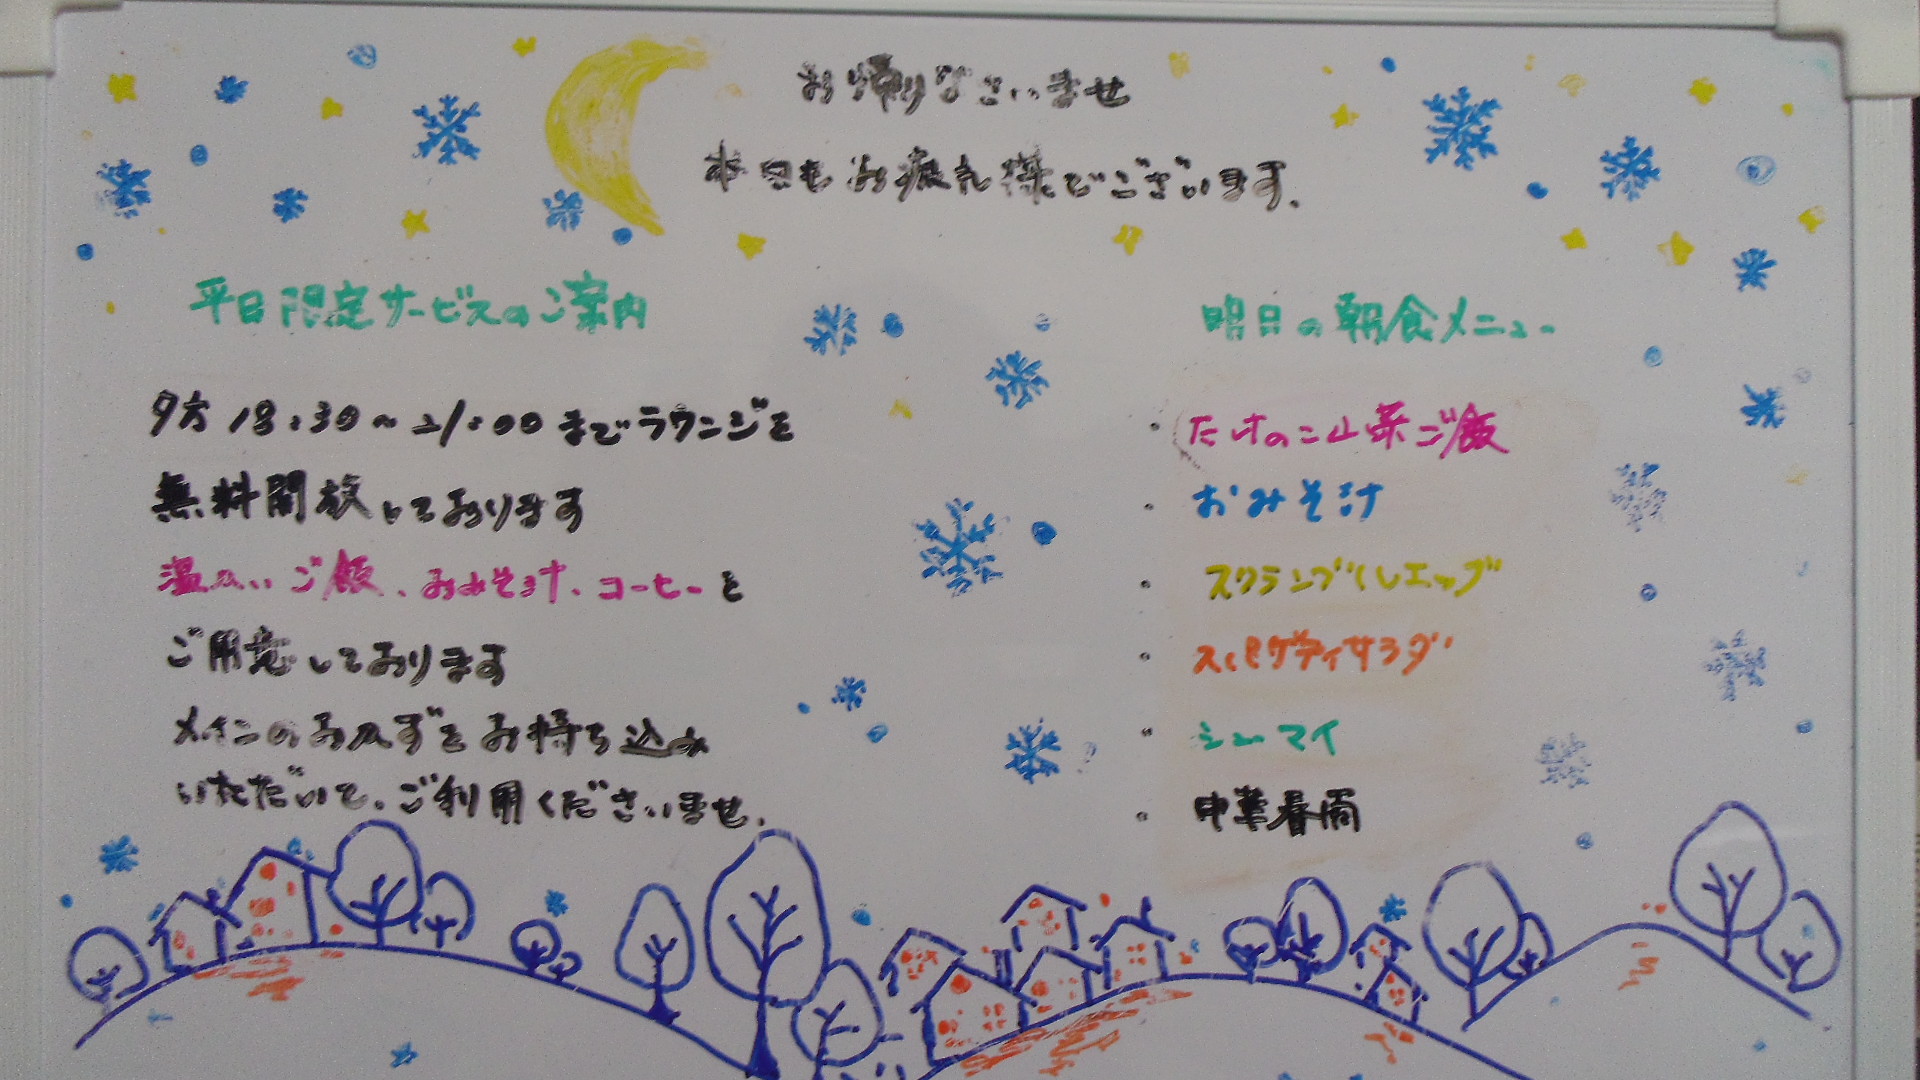 お帰りなさいませ
本日もお疲れ様でございます.
平日限定サービスのご案内
夕方 18:30〜21:00までラウンジを
無料開放しております
温かいご飯、おみそ汁、コーヒーを
ご用意しております
メインのおかずをお持ち込み
いただいて、ご利用くださいませ.
明日の朝食メニュー
・たけのこ山菜ご飯
・おみそ汁
・スクランブルエッグ
・スパゲティサラダ
・シューマイ
・中華春雨